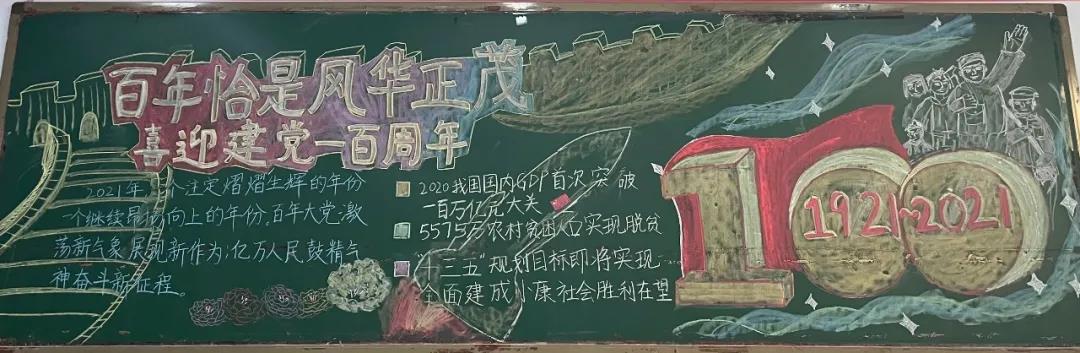 百年恰是风华正茂
喜迎建党一百周年
2021年 个注定熠熠生辉的年份
一个继续昂扬向上的年份。百年大党,激
荡新气象展现新作为,亿万人民鼓精气
神奋斗新征程。
2020我国国内GDP首次突破
一百万亿元大关
5575万农村贫困人口实现脱贫
"十三五"规划目标即将实现
全面建成小康社会胜利在望
100
1921~2021